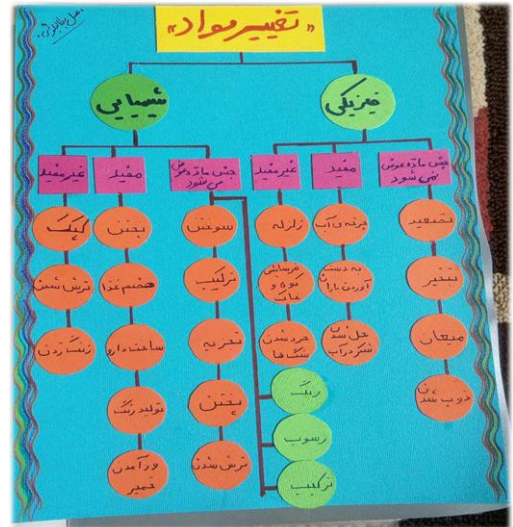 « تغییر مواد »
فیزیکی
شیمیایی
جنس ماده عوض
نمی شود
مفید
غیر مفید
جنس ماده عوض
می شود
مفید
غیر مفید
تصعید
تبخیر
میعان
ذوب شدن
چرخه ی آب
به دست
حل شدن
شکر در آب
زلزله
فرسایش
کوه و
خرد شدن
سنگ ها
سوختن
ترکیب
تجزیه
پختن
ترش شدن
رنگ
رسوب
ترکیب
پختن
هضم غذا
ساخت دارو
تولید رنگ
ور آمدن
خمیر
ترش شدن
زنگ زدن